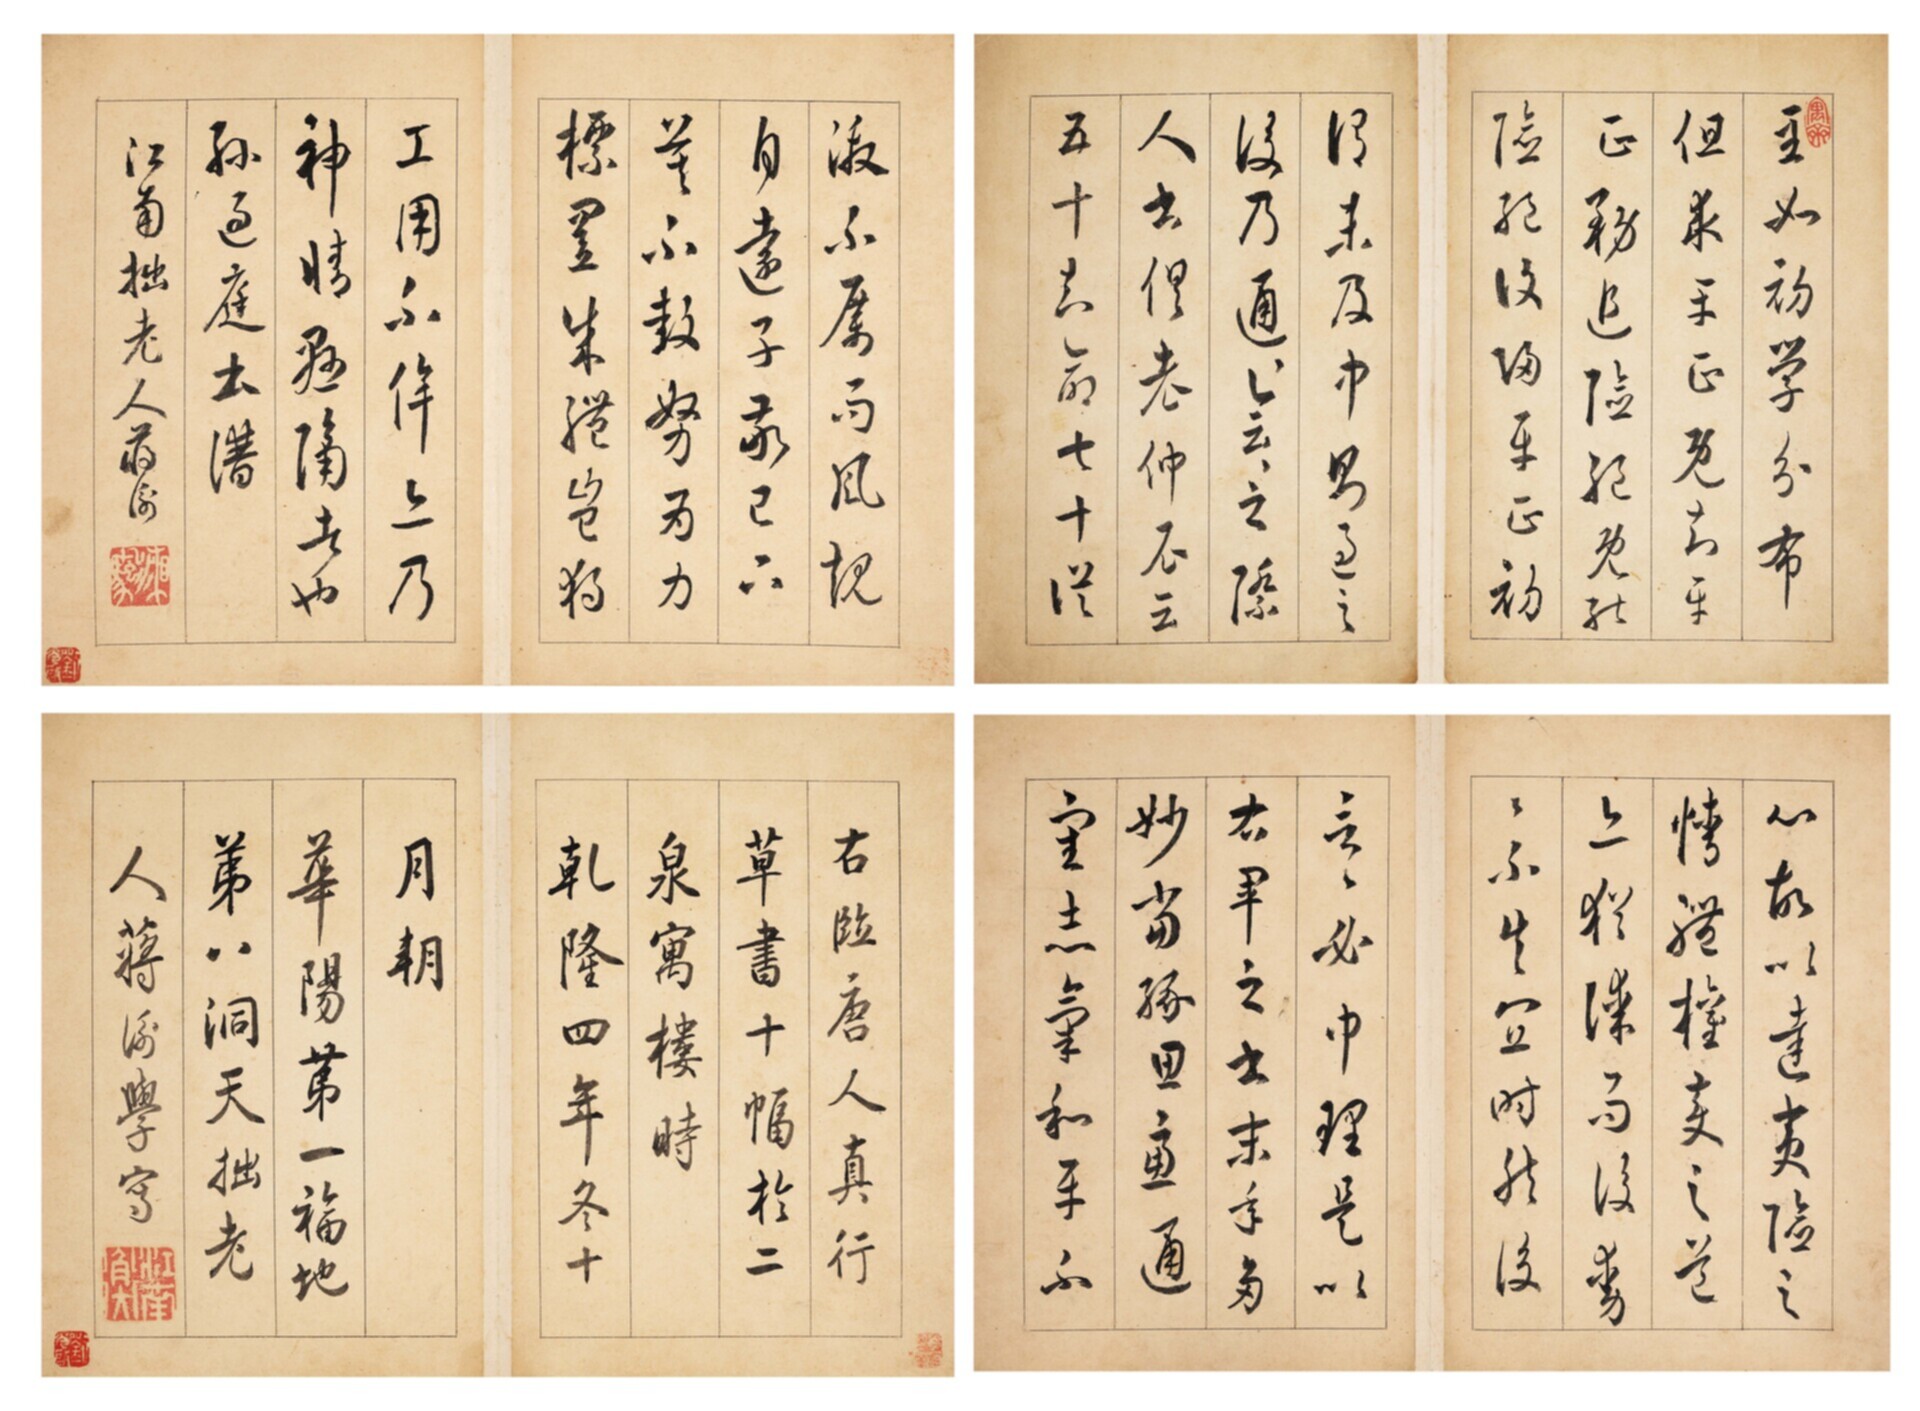 至如初學分布
但求平正既知平
正務追險絕既能
險絕復歸平正初
謂未及中則過之
後乃通〻會〻之際
人書俱老仲尼云
五十知命七十從
心故以達夷險之
情體權變之道
亦猶謀而後動
〻不失宜時然後
言〻必中理是以
右軍之書末年多
妙當緣思慮通
審志氣和平不
激不厲而風規
自遠子敬已下
莫不鼓努為力
標置成體豈獨
工用不侔亦乃
神情懸隔者也
孫過庭書譜
江南拙老人蔣衡
右臨唐人真行
草書十幅於二
泉寓樓時
乾隆四年冬十
月朝
華陽第一福地
第八洞天拙老
人蔣衡學寫